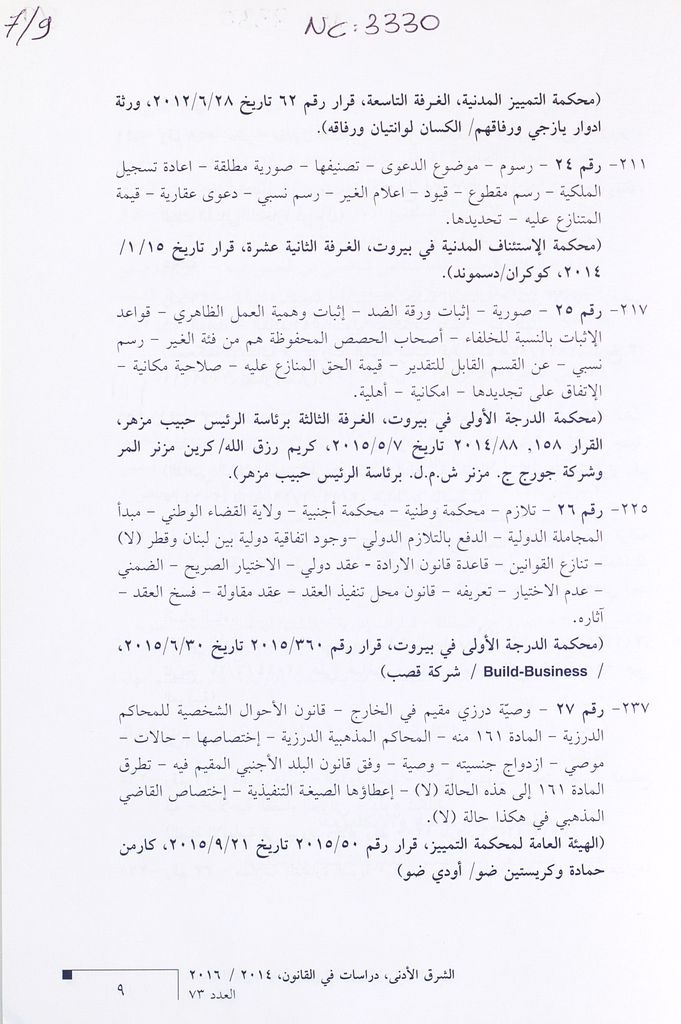 7/9
NC: 3330
(محكمة التمييز المدنية، الغرفة التاسعة، قرار رقم ٦٢ تاريخ ٢٠١٢/٦/٢٨، ورثة
ادوار يازجي ورفاقهم/ الكسان لوانتيان ورفاقه).
٢١١- رقم ٢٤ - رسوم - موضوع الدعوى - تصنيفها - صورية مطلقة - اعادة تسجيل
الملكية - رسم مقطوع - قيود - اعلام الغير - رسم نسبي - دعوى عقارية - قيمة
المتنازع عليه - تحديدها.
(محكمة الإستئناف المدنية في بيروت، الغرفة الثانية عشرة، قرار تاريخ ١/١٥/
٢٠١٤، كوكران/دسموند).
٢١٧- رقم ٢٥ - صورية - إثبات ورقة الضد - إثبات وهمية العمل الظاهري - قواعد
الإثبات بالنسبة للخلفاء - أصحاب الحصص المحفوظة هم من فئة الغير - رسم
نسبي - عن القسم القابل للتقدير - قيمة الحق المنازع عليه - صلاحية مكانية -
الإتفاق على تجديدها - امكانية - أهلية.
(محكمة الدرجة الأولى في بيروت، الغرفة الثالثة برئاسة الرئيس حبيب مزهر،
القرار ١٥٨, ٢٠١٤/٨٨ تاريخ ٢٠١٥/٥/٧، كريم رزق الله/كرين مزنر المر
وشركة جورج ج. مزنر ش.م.ل. برئاسة الرئيس حبيب مزهر).
٢٢٥- رقم ٢٦ - تلازم - محكمة وطنية - محكمة أجنبية - ولاية القضاء الوطني - مبدأ
المجاملة الدولية - الدفع بالتلازم الدولي -وجود اتفاقية دولية بين لبنان وقطر (لا)
- تنازع القوانين - قاعدة قانون الارادة - عقد دولي - الاختيار الصريح - الضمني
- عدم الاختيار - تعريفه - قانون محل تنفيذ العقد - عقد مقاولة - فسخ العقد -
آثاره.
(محكمة الدرجة الأولى في بيروت، قرار رقم ٢٠١٥/٣٦٠ تاريخ ٢٠١٥/٦/٣٠،
/ Build-Business / شركة قصب)
٢٣٧- رقم ٢٧ - وصيّة درزي مقيم في الخارج - قانون الأحوال الشخصية للمحاكم
الدرزية - المادة ١٦١ منه - المحاكم المذهبية الدرزية - إختصاصها - حالات -
موصي - ازدواج جنسيته - وصية - وفق قانون البلد الأجنبي المقيم فيه - تطرق
المادة ١٦١ إلى هذه الحالة (لا) - إعطاؤها الصيغة التنفيذية - إختصاص القاضي
المذهبي في هكذا حالة (لا).
(الهيئة العامة لمحكمة التمييز، قرار رقم ٢٠١٥/٥٠ تاريخ ٢٠١٥/٩/٢١، كارمن
حمادة وكريستين ضو/ أودي ضو)
الشرق الأدنى، دراسات في القانون، ٢٠١٤ / ٢٠١٦
العدد ٧٣
٩